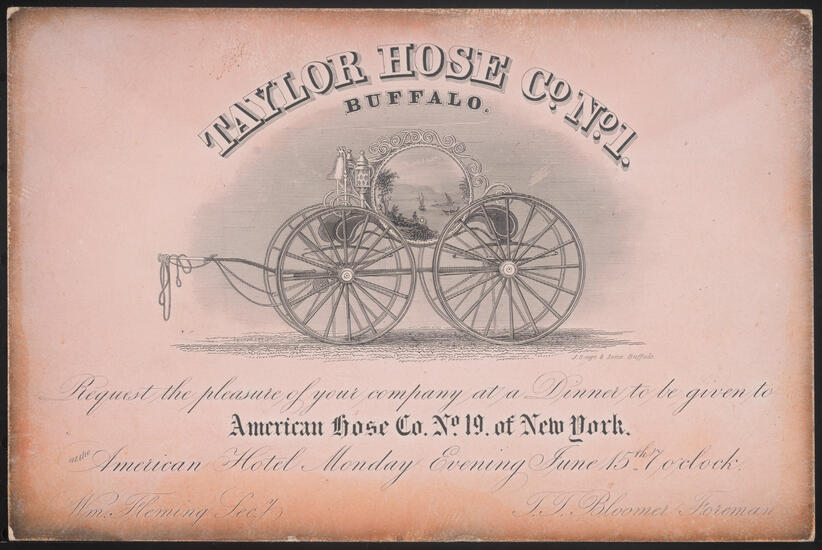 TAYLOR HOSE Co. No. 1.
BUFFALO.
J. Sage & Sons. Buffalo.
Request the pleasure of your company at a Dinner to be given to
American Hose Co. No. 19. of New York.
at the American Hotel Monday Evening June 15th 7 o'clock.
Wm. Fleming Secy. T. T. Bloomer Foreman